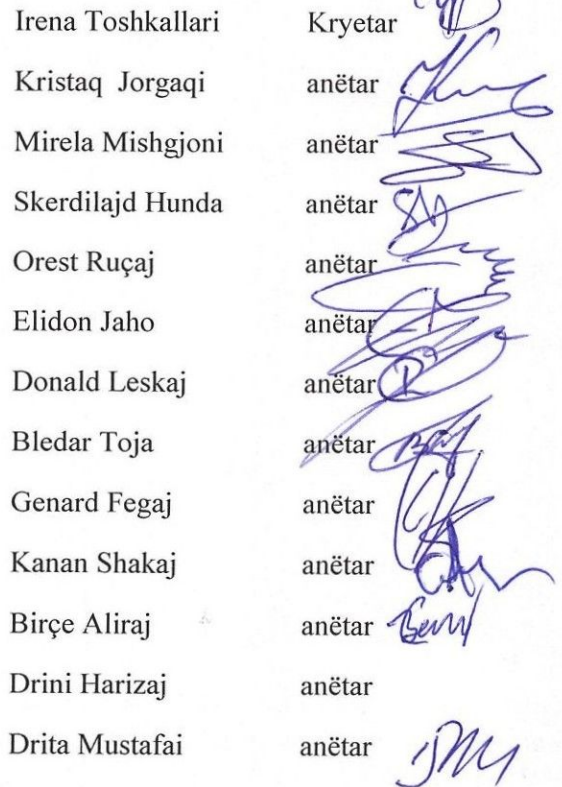 Irena Toshkallari Kryetar
Kristaq Jorgaqi anëtar
Mirela Mishgjoni anëtar
Skerdilajd Hunda anëtar
Orest Ruçaj anëtar
Elidon Jaho anëtar
Donald Leskaj anëtar
Bledar Toja anëtar
Genard Fegaj anëtar
Kanan Shakaj anëtar
Birçe Aliraj anëtar
Drini Harizaj anëtar
Drita Mustafai anëtar